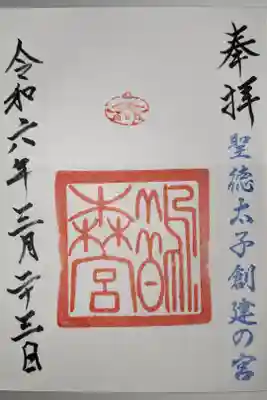 奉拝
聖徳太子創建の宮
鵲森宮
令和六年三月二十三日